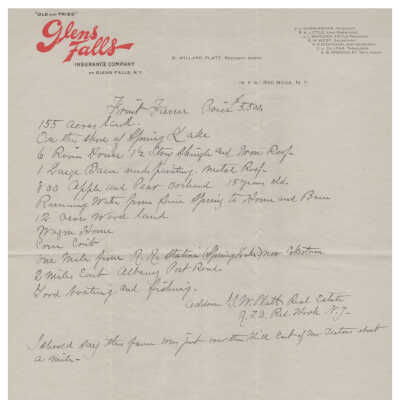 "OLD AND TRIED"
Glens
Falls
INSURANCE COMPANY
OF GLENS FALLS, N.Y.
G. WILLARD PLATT, RESIDENT AGENT
R.F.D. RED HOOK, N.Y.
Fruit Farm Price $ 5.500.
155 acres land.
On the shore of Spring Lake
6 Room House 1½ Story Shingle and Iron Roof
1 Large Barn Metal Roof.
800 Apple and Pear orchard 15 years old.
Running Water from Spring to House and Barn
12 acres Wood land.
Wagon House
Corn Crib
One Mile from R.R. Station (Spring Lake) near
2 Miles East Albany Post Road.
Good boating and fishing.
Address G.W. Platt Real Estate
R.F.D. Red Hook N.Y.
I should say this farm was just over the Hill East of Mr. about
a mile.